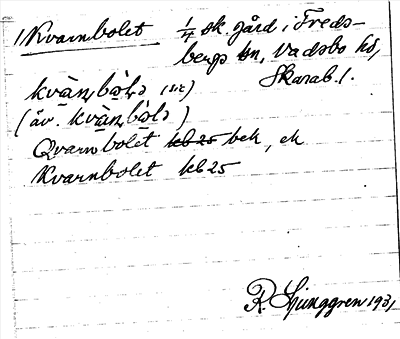 1 Kvarnbolet 1/4 sk. gård i Freds-
bergs sn, Vadsbo hd,
Skarab. l.
kvà̀n,bò̀ls (sic)
(äv. kvà̀n,bò̀ls)
Qvarnbolet kb 25 bek, ek
Kvarnbolet kb 25
R. Ljunggren 1931